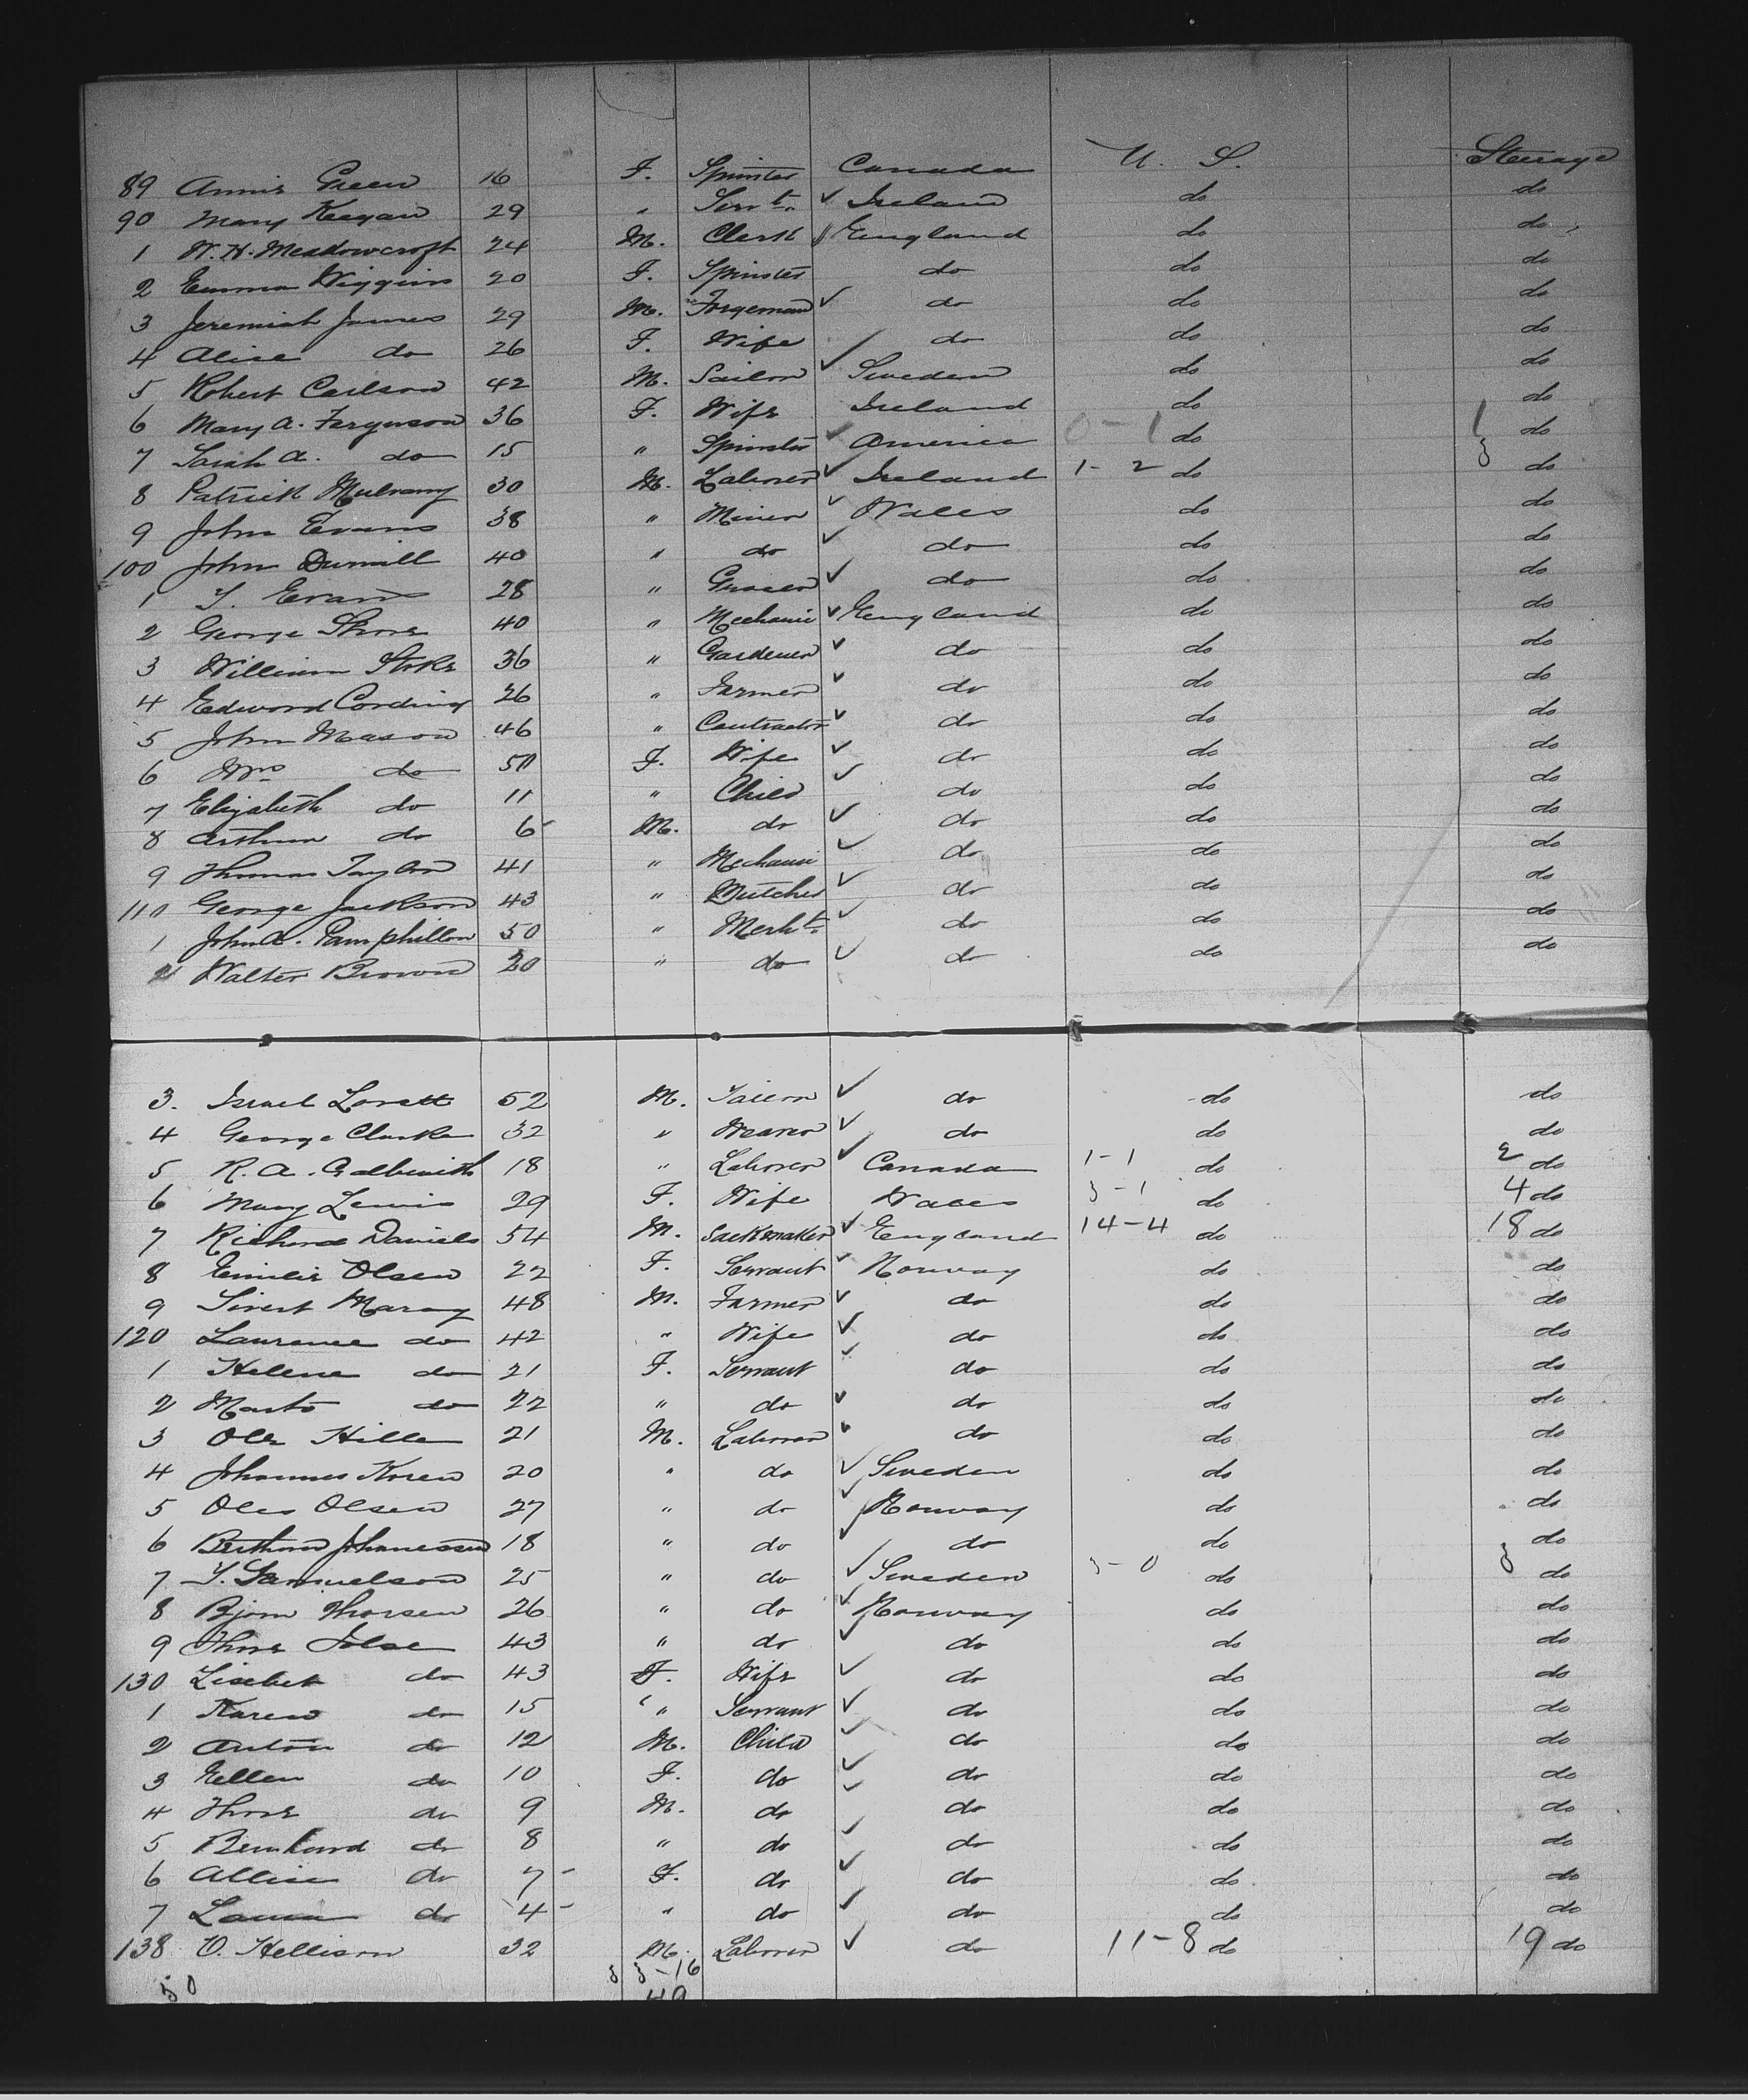 89 Annie Green 16 F. Spinster Canada U. S. Steerage
90 Mary Keegan 29 " Servt. ✓ Ireland do do
1 W. H. Meadowcroft 24 M. Clerk England do do
2 Emma Wiggins 20 F. Spinster do do do
3 Jeremiah James 29 M. Forgeman ✓ do do do
4 Alice do 26 F. Wife ✓ do do do
5 Robert Carlson 42 M. Sailor ✓ Sweden do do
6 Mary A. Ferguson 36 F. Wife Ireland do do
7 Sarah A. do 15 " Spinster ✓ America 0-1 do 1 do
8 Patrick Mulvany 30 M. Laborer ✓ Ireland 1-2 do 3 do
9 John Evans 38 " Miner ✓ Wales do do
100 John Durnill 40 " do ✓ do do do
1 T. Evans 28 " Grocer ✓ do do do
2 George Shore 40 " Mechanic ✓ England do do
3 William Stoke 36 " Gardener ✓ do do do
4 Edward Cording 26 " Farmer ✓ do do do
5 John Mason 46 " Contractor ✓ do do do
6 Mrs do 50 F. Wife ✓ do do do
7 Elizabeth do 11 " Child ✓ do do do
8 Arthur do 6 - M. do ✓ do do do
9 Thomas Taylor 41 " Mechanic ✓ do do do
110 George Jackson 43 " Butcher ✓ do do do
1 John A. Pamphillon 50 " Merht. ✓ do do do
2 Walter Brown 20 " do ✓ do do do
3. Israel Lovett 52 M. Tailor ✓ do do do
4 George Clarke 32 " Weaver ✓ do do do
5 R. A. Galbraith 18 " Laborer ✓ Canada 1-1 do 2 do
6 Mary Lewis 29 F. Wife Wales 3-1 do 4 do
7 Richard Daniels 54 M. Sackmaker ✓ England 14-4 do 18 do
8 Emilie Olsen 22 F. Servant ✓ Norway do do
9 Sivert Marany 48 M. Farmer ✓ do do do
120 Laurence do 42 " Wife ✓ do do do
1 Helene do 21 F. Servant ✓ do do do
2 Marto do 22 " do ✓ do do do
3 Ole Hille 21 M. Laborer ✓ do do do
4 Johannes Koren 20 " do ✓ Sweden do do
5 Oles Olsen 27 " do ✓ Norway do do
6 Johanessen 18 " do ✓ do do do
7 T. Samuelson 25 " do ✓ Sweden 3-0 do 3 do
8 Bjorn Thorsen 26 " do ✓ Norway do do
9 Thore 43 " do ✓ do do do
130 Lisebet do 43 F. Wife ✓ do do do
1 Karen do 15 " Servant ✓ do do do
2 Anton do 12 M. Child ✓ do do do
3 Ellen do 10 F. do ✓ do do do
4 Thore do 9 M. do ✓ do do do
5 Bernhard do 8 " do ✓ do do do
6 Allice do 7 - F. do ✓ do do do
7 Laura do 4 - " do ✓ do do do
138 O. Hellison 32 M. Laborer ✓ do 11-8 do 19 do
50 33-16
49